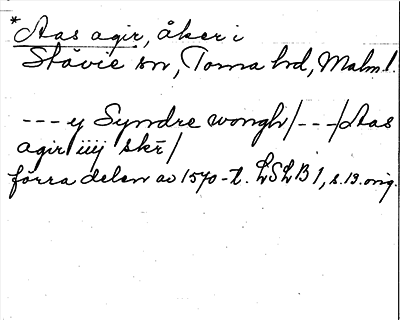 *Aas agir, åker i
Stävie sn, Torna hd, Malm l.
--- y Syndre wongh/---/Aas
agir iiij skr̄/
förra delen av 1570-t. LSLB 1, s. 13. orig.